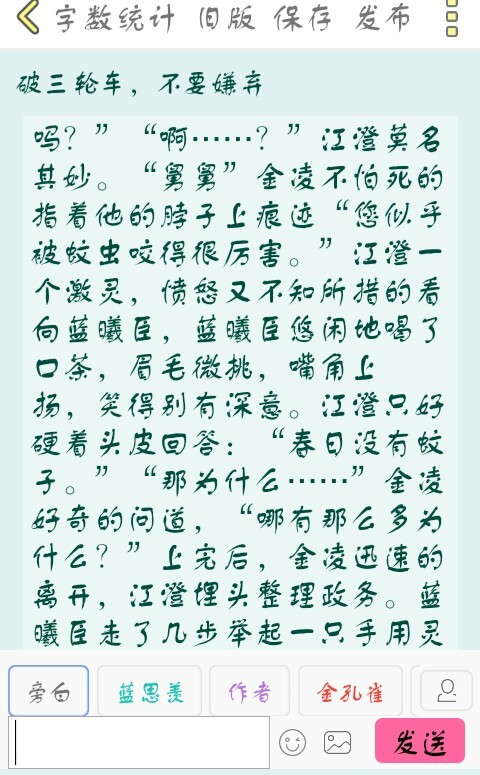 字数统计 旧版 保存 发布
破三轮车，不要嫌弃
吗？”“啊……？”江澄莫名
其妙。“舅舅”金凌不怕死的
指着他的脖子上痕迹“您似乎
被蚊虫咬得很厉害。”江澄一
个激灵，愤怒又不知所措的看
向蓝曦臣，蓝曦臣悠闲地喝了
口茶，眉毛微挑，嘴角上
扬，笑得别有深意。江澄只好
硬着头皮回答：“春日没有蚊
子。”“那为什么……”金凌
好奇的问道，“哪有那么多为
什么？”上完后，金凌迅速的
离开，江澄埋头整理政务。蓝
曦臣走了几步举起一只手用灵
旁白 蓝思羡 作者 金孔雀
发送